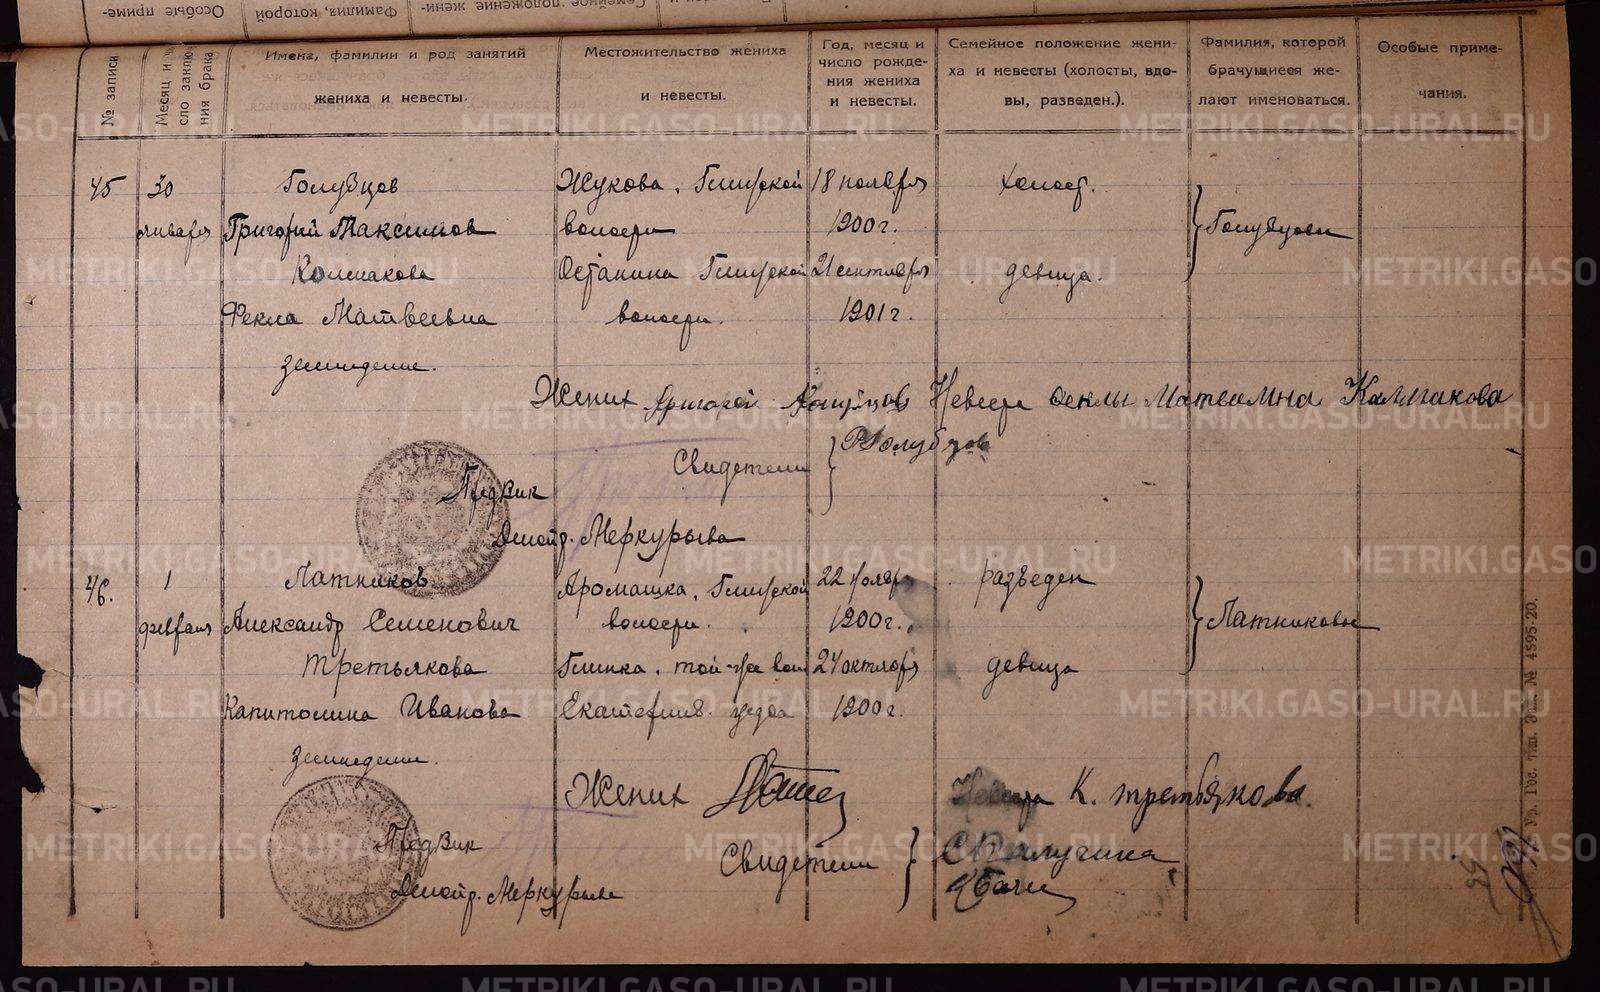 № записи
Месяц и чи-
сло заключе-
ния брака
Имена, фамилии и род занятий
жениха и невесты.
Местожительство жениха
и невесты.
Год, месяц и
число рожде-
ния жениха
и невесты.
Семейное положение жени-
ха и невесты (холосты, вдо-
вы, разведен.).
Фамилия, которой
брачущиеся же-
лают именоваться.
Особые приме-
чания.
45 30 Голубцов Жукова, Глинской 18 ноября холост.
января Григорий Максимов волости 1900 г. Голубцовы
Колмакова Останина Глинской 21 сентября девица.
Фекла Матвеевна волости. 1901 г.
земледелие.
Жених Григорей Голупцов Невеста Феклы Матвеамна Калмакова
Свидетели Голубцов
Предвик
Делопр. Меркурьева
46. 1 Латников Аромашка, Глинской 22 ноября разведен
февраля Александр Семенович волости. 1900 г. Латниковы
Третьякова Глинка, той-же вол 24 октября девица
Капитолина Иванова Екатеринб. уезда 1900 г.
земледелие.
Жених Невеста К. Третьякова.
Предвик
Свидетели
Делопр. Меркурьева
Ур. Гос. тип. № 4595-20.
METRIKI.GASO-URAL.RU